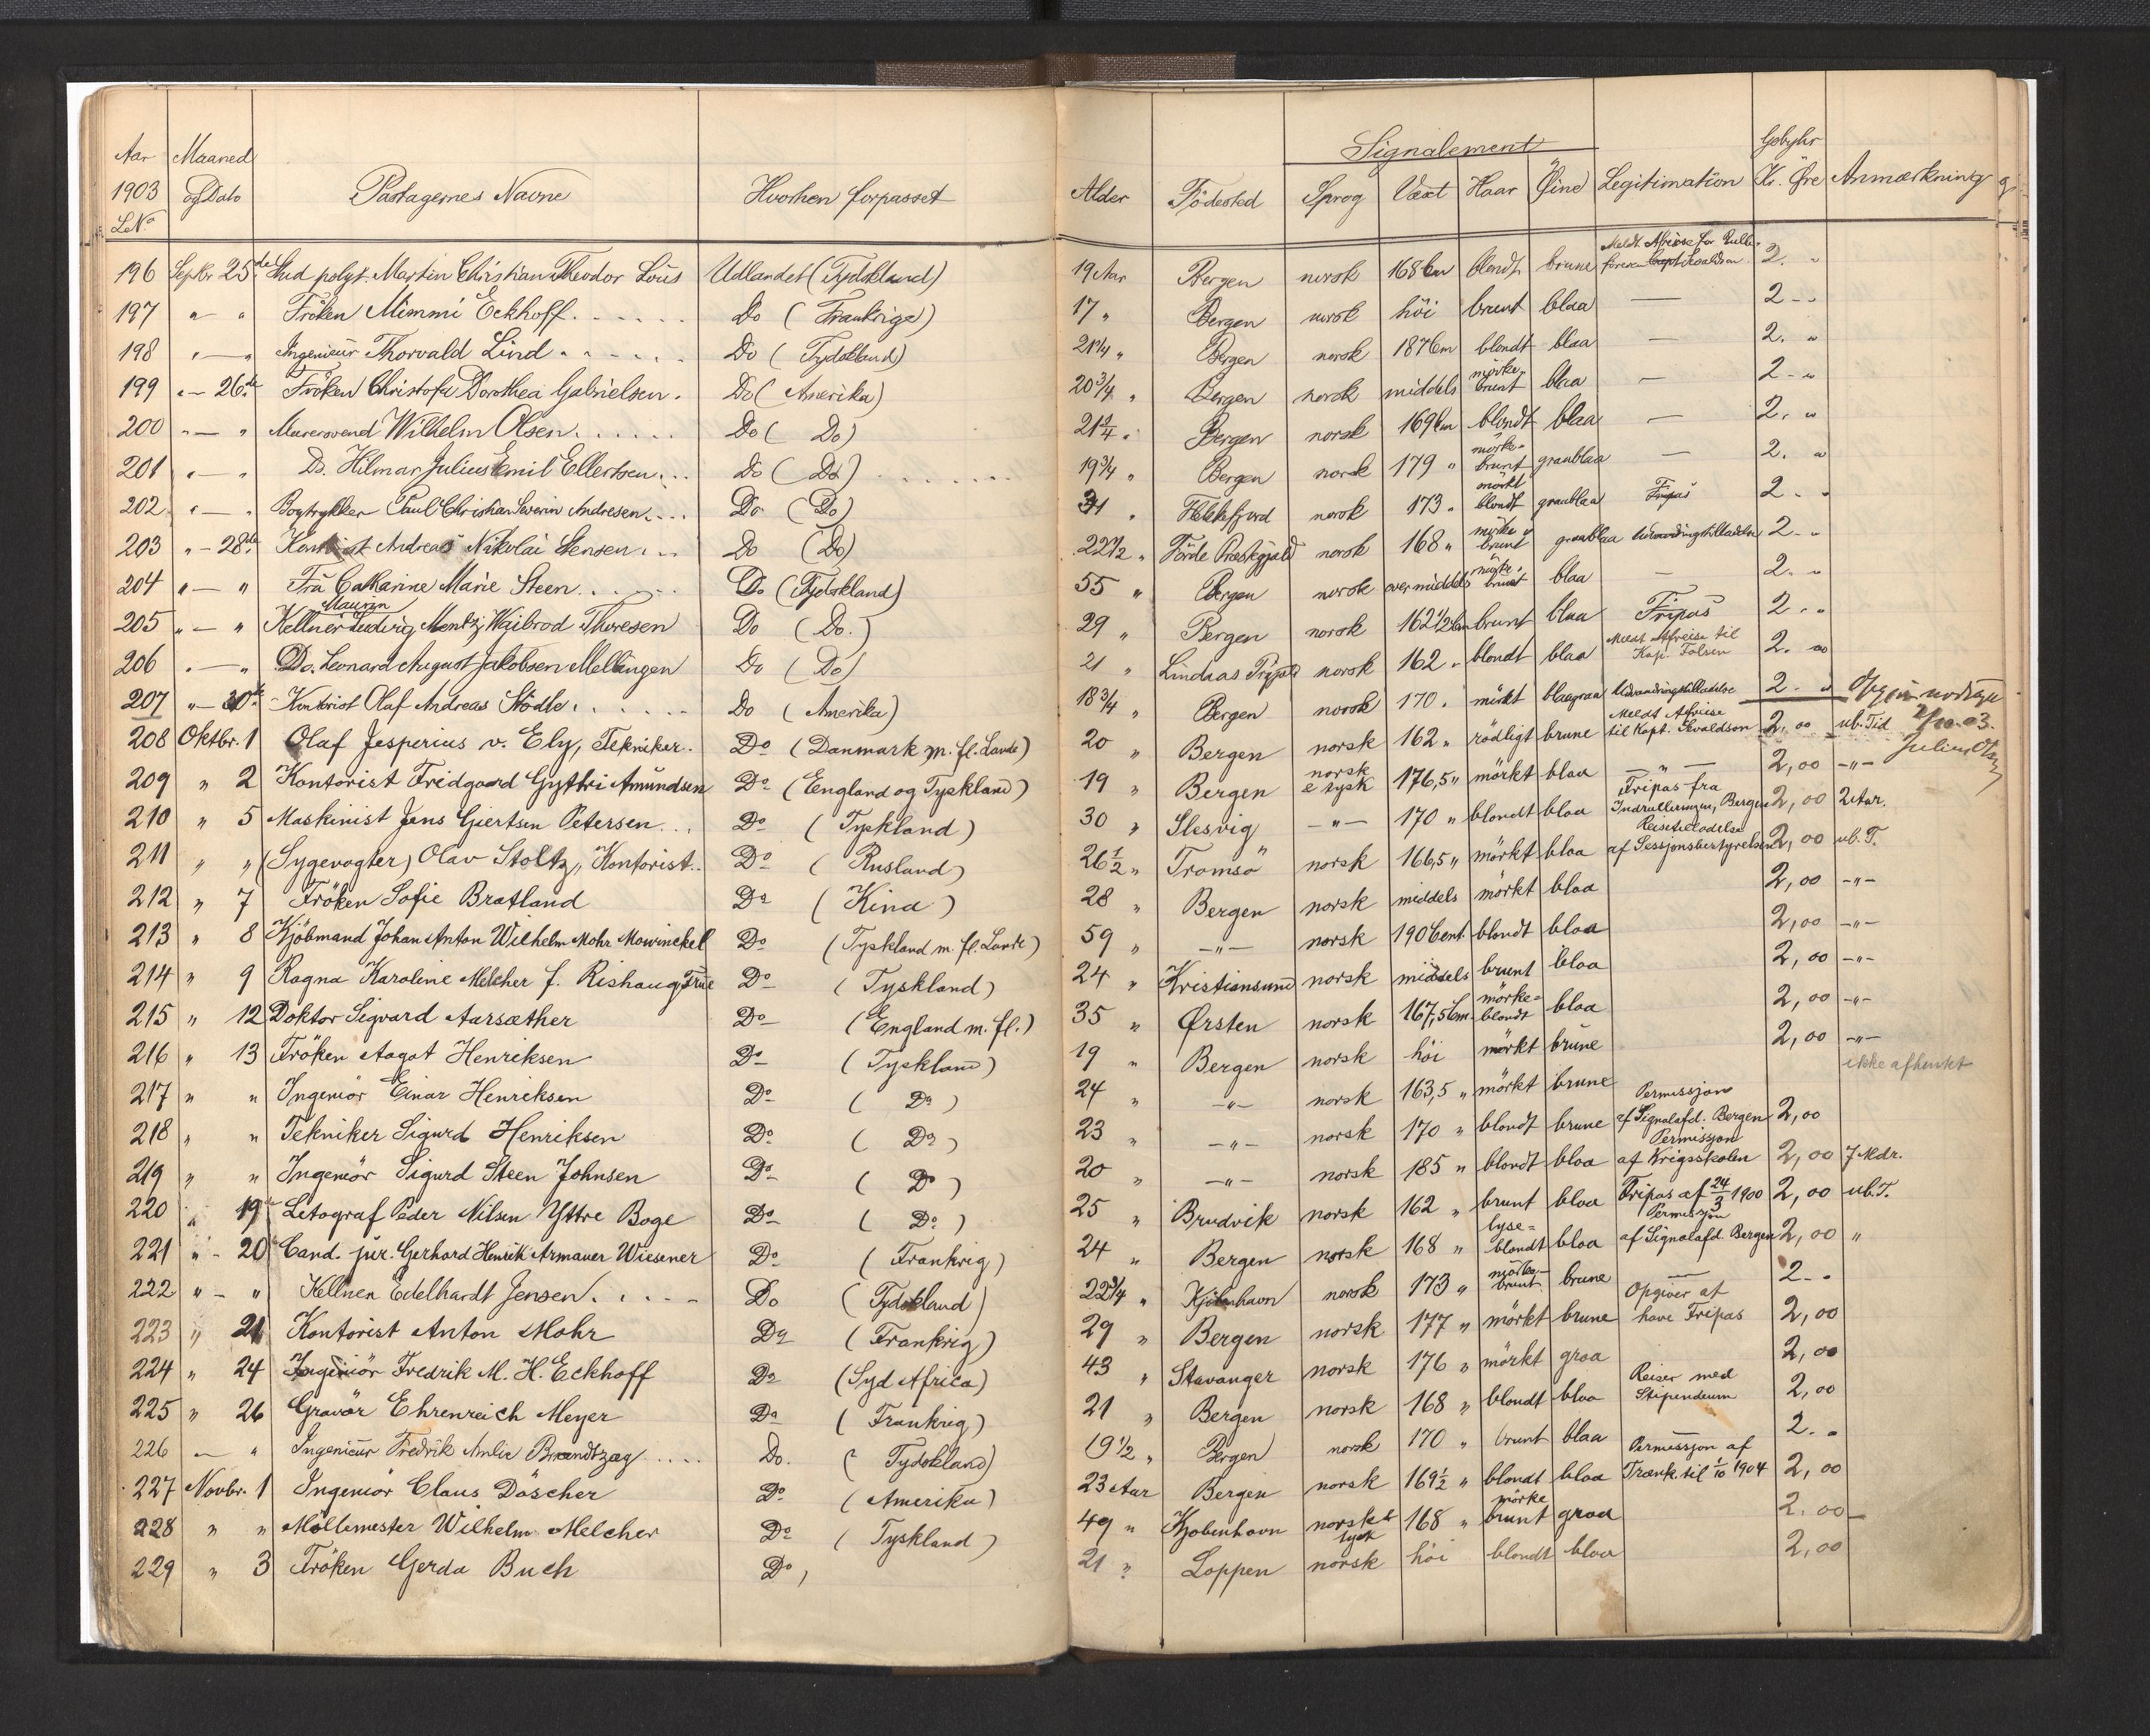 Aar Maaned Signalement Gebyhr
1903 og Dato Pastagernes Navne Hvorhen forpasset Alder Födested Sprog Væxt Haar Öine Legitimation Kr. Öre Anmærkning
LNo
196 Septbr 25de Stud polyt. Martin Christian Theodor Lous Udlandet (Tydskland) 19 Aar Bergen norsk 168 Cm blondt brune Meldt Afreise for Rulle- 2. "
197 " — " Fröken Mimmi Eckhoff Do (Frankrige) 17 " Bergen norsk höi brunt blaa — 2 - "
198 " — " Ingenieur Thorvald Lind Do (Tydskland) 21 1/4 " Bergen norsk 187 Cm blondt blaa — 2. "
199 " — 26de Fröken Christofa Dorothea Gabrielsen. Do (Amerika) 20 3/4 " Bergen norsk middels mörke-brunt blaa — 2 - "
200 " — " Murersvend Wilhelm Olsen Do (Do) 21 1/4 " Bergen norsk 169 Cm blondt blaa — 2. "
201 " — " Do. Hilmar Julius Emil Ellertsen Do (Do) 19 3/4 " Bergen norsk 179 " mörke-brunt graablaa — 2. "
202 " — " Bogtrykker Paul Christian Severin Andresen Do (Do) 31 " Flekkefjord norsk 173 " mörkt blondt graablaa Fripas 2 - "
203 " - 28de Kontorist Andreas Nikolai Stensen Do (Do) 22 1/2 " Förde Præstegjæld norsk 168 " mörke brunt graablaa Udvandringstilladelse 2 - "
204 " — " Fru Catharine Marie Steen Do (Tydskland) 55 " Bergen norsk over middels mörke-brunt blaa — 2. "
Mauren
205 " — " Kellner Ludvig Mentz Waibrod Thoresen Do (Do.) 29 " Bergen norsk 162 1/2 Cm brunt blaa Fripas 2 . "
206 " — " Do. Leonard August Jakobsen Mellingen Do (Do) 21 " Lindaas Prgjd norsk 162 " blondt blaa Meldt Afreise til Kap. Folsen 2. "
207 " — 30te Kontorist Olaf Andreas Stödle Do (Amerika) 18 3/4 " Bergen norsk 170 . mörkt blaagraa Udvandringstilladelse 2. "
208 Oktbr. 1 Olaf Jesperius v. Ely, Tekniker. Do (Danmark m. fl. Lande) 20 " Bergen norsk 162 " rödligt brune Meldt Afreise til Kapt. Sevaldson 2,00 ub. Tid 2/10-03.
209 " 2 Kontorist Fridgaard Gythri Amundsen Do (England og Tyskland) 19 " Bergen norsk & tysk 176,5 " mörkt blaa — " — 2,00 -"- Julius Olsen
210 " 5 Maskinist Jens Giertsen Petersen Do (Tyskland) 30 " Slesvig -"- 170 " blondt blaa Fripas fra Indrulleringen, Bergen 2,00 2 Aar.
211 " " (Sygevogter) Olav Stoltz, Kontorist.. Do (Rusland) 26 1/2 " Tromsö norsk 166,5 " mörkt blaa Reisetilladelse af Sessjonsbestyrelsen 2,00 ub. T.
212 " 7 Fröken Sofie Bratland Do (Kina) 28 " Bergen norsk middels mörkt blaa 2,00 -"-
213 " 8 Kjöbmand Johan Anton Wilhelm Mohr Mowinckel Do (Tyskland m. fl. Lande) 59 " -"- norsk 190 Cent. blondt blaa 2,00 -"-
214 " 9 Ragna Karoline Melcher f. Rishaug, Frue Do (Tyskland) 24 " Kristiansund norsk middels brunt blaa 2,00 -"-
215 " 12 Doktor Sigvard Aarsæther Do (England m. fl.) 35 " Ørsten norsk 167,5 Cm. mörke-blondt blaa 2,00 -"-
216 " 13 Fröken Aagot Henriksen Do (Tyskland) 19 " Bergen norsk höi mörkt brune 2,00 -"-
217 " " Ingeniör Einar Henriksen Do (Do) 24 " -"- norsk 163,5 " mörkt brune ikke afhentet
218 " " Tekniker Sigurd Henriksen Do (Do) 23 " -"- norsk 170 " blondt brune Permissjon af Signalafd. Bergen 2,00
219 " " Ingeniör Sigurd Steen Johnsen Do (Do) 20 " -"- norsk 185 " blondt blaa Permisjon af Krigsskolen 2,00 7 Mdr.
220 " 19 Litograf Peder Nilsen Yttre Boge Do (Do) 25 " Brudvik norsk 162 " brunt blaa Fripas af 24/3 1900 2,00 ub. T.
221 " - 20 Cand. jur. Gerhard Henrik Armauer Wiesener Do (Frankrig) 24 " Bergen norsk 168 " lyse-blondt blaa Permisjon af Signalafd. Bergen 2,00 "
222 " - " Kellner Edelhardt Jensen Do (Tydskland) 22 3/4 " Kjöbenhavn norsk 173 " mörke-brunt brune — 2 - .
223 " 21 Kontorist Anton Mohr Do (Frankrig) 29 " Bergen norsk 177 " mörkt brune Opgiver at have Fripas 2,00
224 " 24 Ingeniör Fredrik M. H. Eckhoff Do (Syd Africa) 43 " Stavanger norsk 176 " mörkt graa 2,00
225 " 26 Gravör Ehrenreich Meyer Do (Frankrig) 21 " Bergen norsk 168 " blondt blaa Reiser med Stipendium 2,00
226 — " Ingenieur Fredrik Amlie Brandtzæg Do. (Tydskland) 19 1/2 " Bergen norsk 170 " brunt blaa 2. "
227 Novbr. 1 Ingeniör Claus Döscher Do (Amerika) 23 Aar Bergen norsk 169 1/2 " blondt blaa Permissjon af Trænk. til 1/10 1904 2,00
228 " " Möllemester Wilhelm Melcher Do (Tyskland) 49 " Kjøbenhavn norsk & tysk 168 " mörke brunt graa 2.00
229 " 3 Fröken Gerda Buch Do , 21 " Loppen norsk höi blondt blaa 2,00